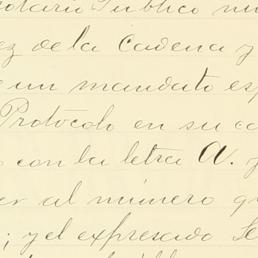 otario Público nu
ez de la Cadena y
e un mandato esp
Protócolo en su ca
con la letra A. y
er al número q
; y el expresado Le